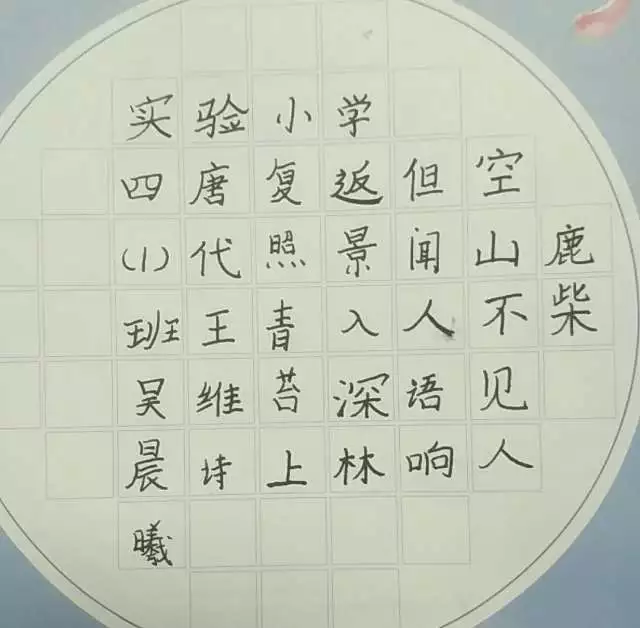 鹿柴
空山不见人
但闻人语响
返景入深林
复照青苔上
唐代王维诗
实验小学
四(1)班吴晨曦